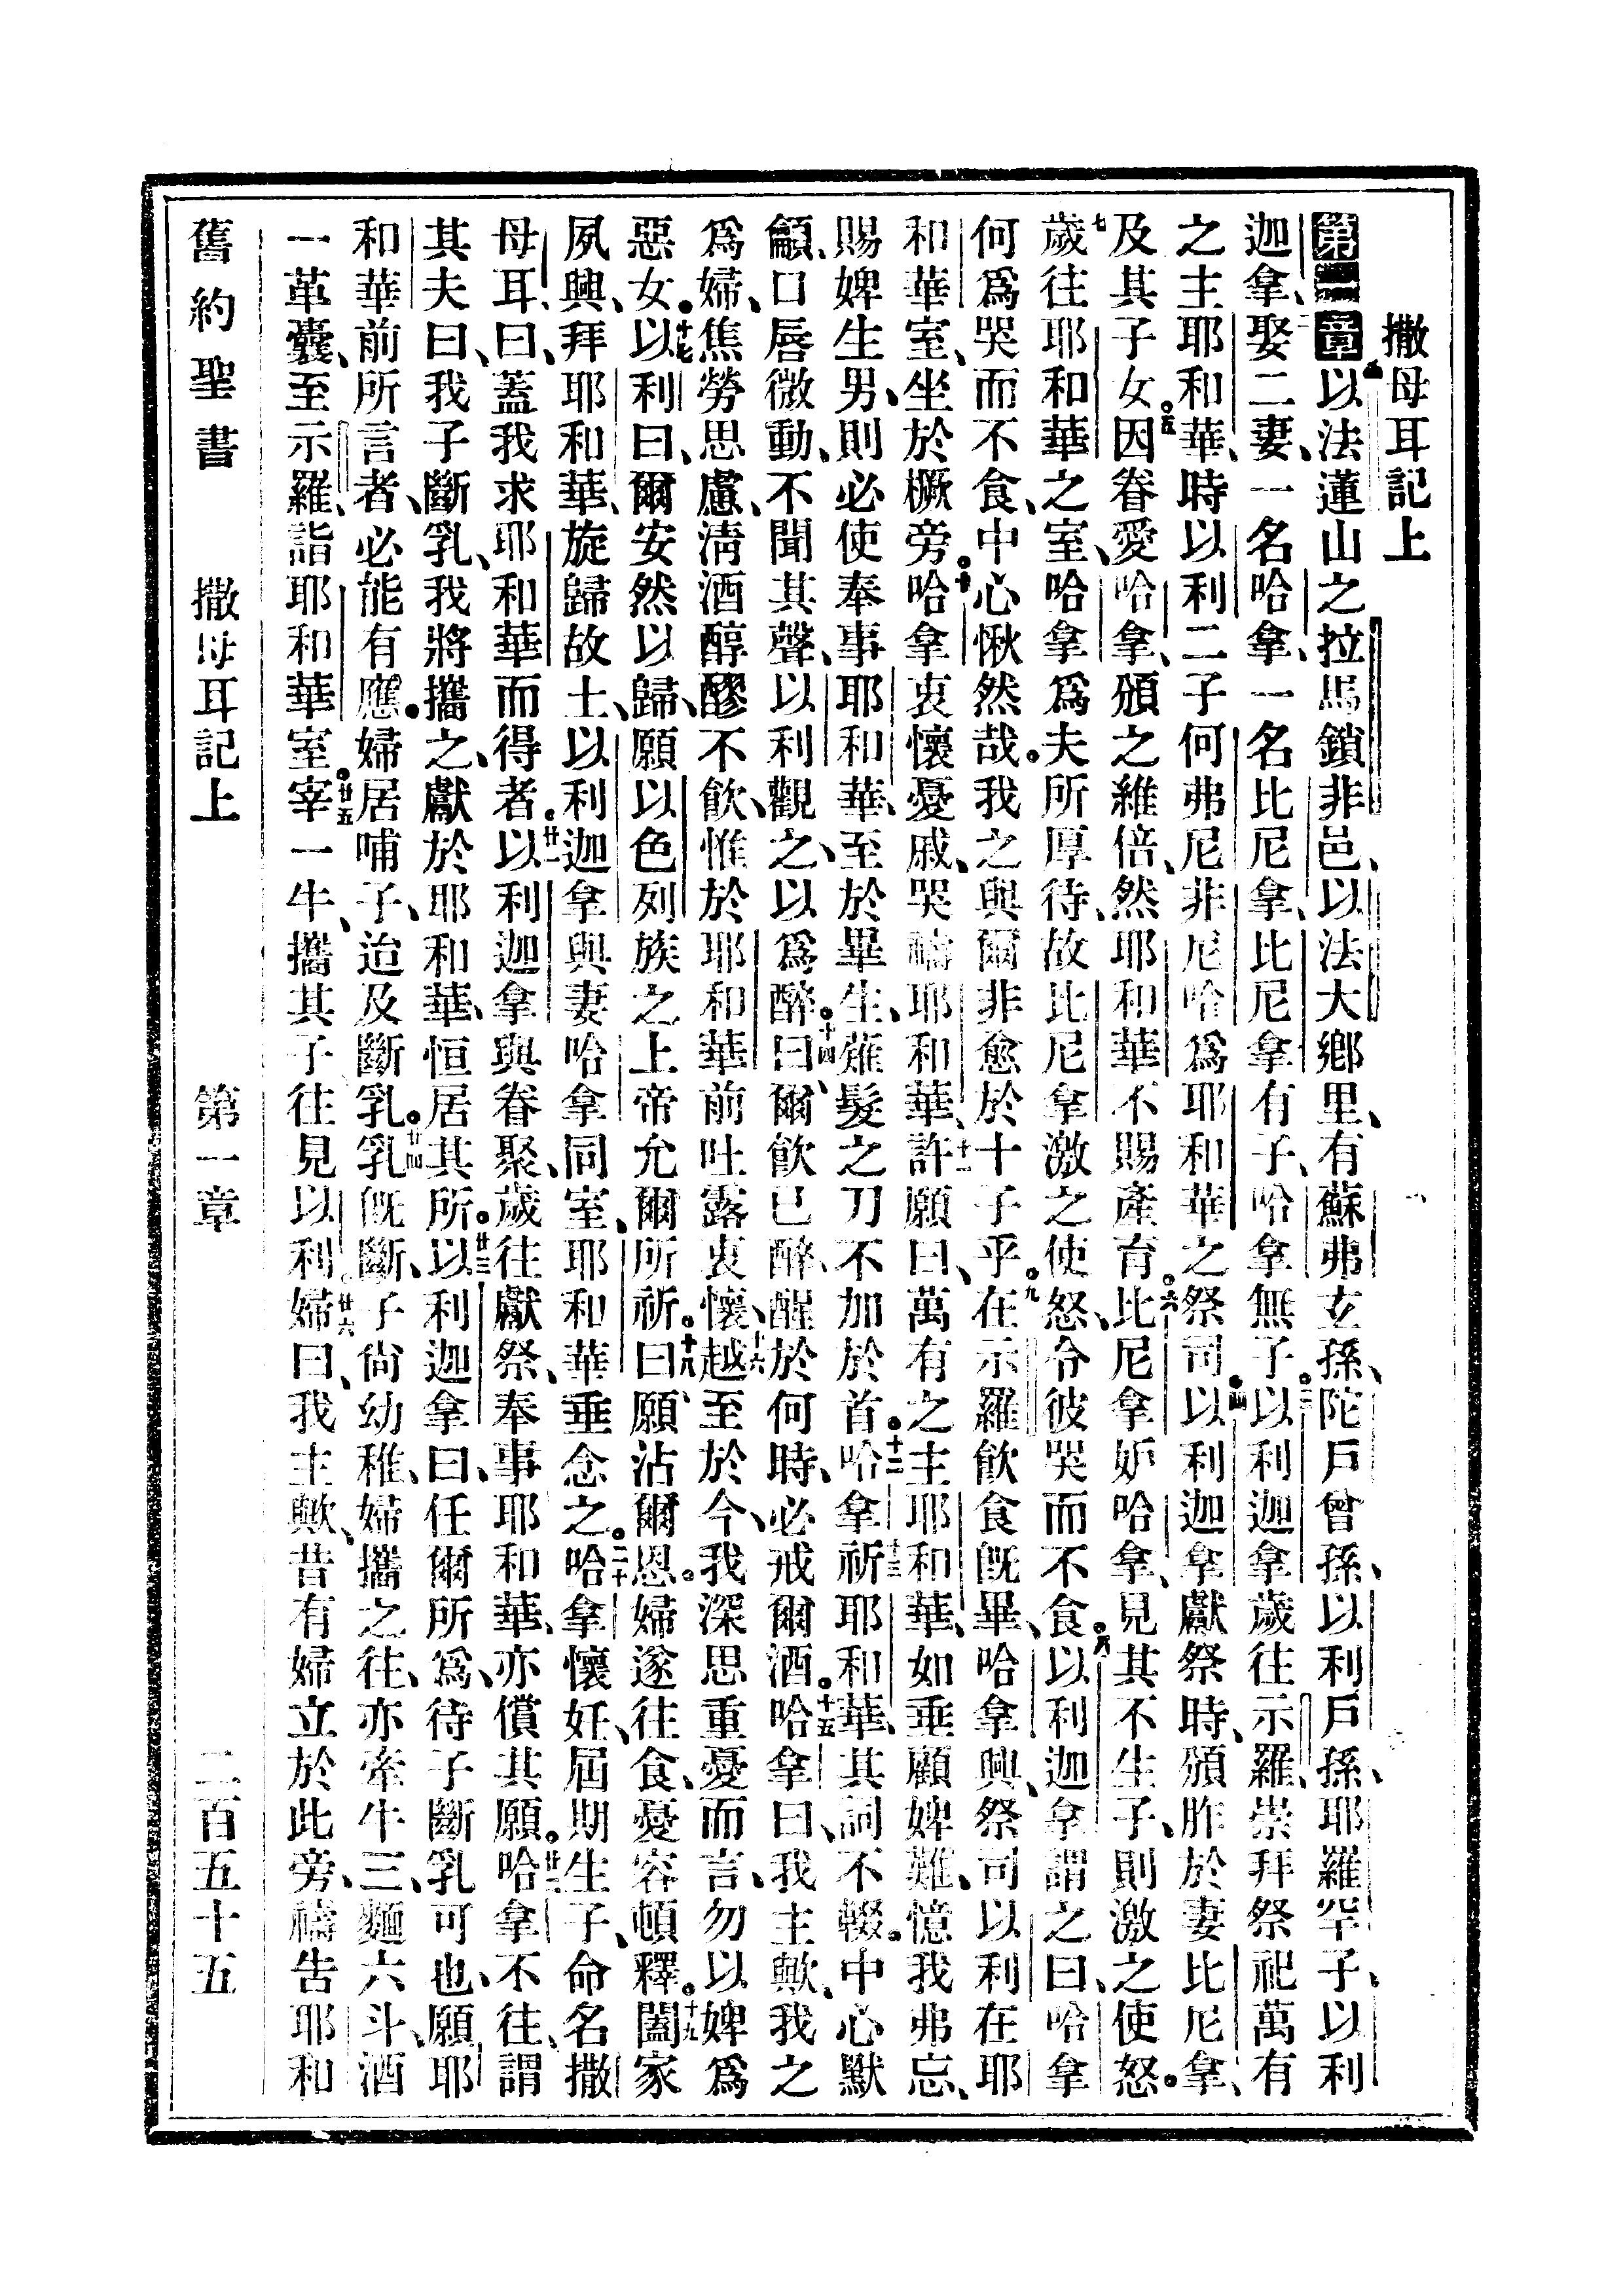 撒母耳記上
第一章 一以法蓮山之拉馬鎖非邑、以法大鄉里、有蘇弗玄孫、陀戶曾孫、以利戶孫、耶羅罕子、以利
迦拿、二娶二妻、一名哈拿、一名比尼拿、比尼拿有子、哈拿無子。三以利迦拿歲往示羅、崇拜祭祀萬有
之主耶和華、時以利二子何弗尼非尼哈爲耶和華之祭司。四以利迦拿獻祭時、頒胙於妻比尼拿、
及其子女。五因眷愛哈拿、頒之維倍、然耶和華不賜產育。六比尼拿妒哈拿、見其不生子、則激之使怒。
七歲往耶和華之室、哈拿爲夫所厚待、故比尼拿激之使怒、令彼哭而不食。八以利迦拿謂之曰、哈拿
何爲哭而不食、中心愀然哉。我之與爾非愈於十子乎。九在示羅飲食旣畢、哈拿興、祭司以利在耶
和華室、坐於橛旁。十哈拿衷懷憂戚、哭禱耶和華、十一許願曰、萬有之主耶和華、如垂顧婢難、憶我弗忘、
賜婢生男、則必使奉事耶和華、至於畢生、薙髮之刀不加於首。十二哈拿祈耶和華、其詞不輟。十三中心默
籲、口唇微動、不聞其聲、以利觀之、以爲醉。十四曰、爾飲已醉、醒於何時、必戒爾酒。十五哈拿曰、我主歟、我之
爲婦、焦勞思慮、淸酒醇醪不飲、惟於耶和華前吐露衷懷、十六越至於今、我深思重憂而言、勿以婢爲
惡女。十七以利曰、爾安然以歸、願以色列族之上帝允爾所祈。十八曰、願沾爾恩。婦遂往食、憂容頓釋。十九闔家
夙興、拜耶和華、旋歸故土、以利迦拿與妻哈拿同室、耶和華垂念之。二十哈拿懷妊、屆期生子、命名撒
母耳、曰、蓋我求耶和華而得者。廿一以利迦拿與眷聚、歲往獻祭、奉事耶和華、亦償其願。廿二哈拿不往、謂
其夫曰、我子斷乳、我將攜之、獻於耶和華、恒居其所。廿三以利迦拿曰、任爾所爲、待子斷乳可也、願耶
和華前所言者、必能有應。婦居哺子、迨及斷乳。廿四乳旣斷、子尙幼稚、婦攜之往、亦牽牛三、麵六斗、酒
一革囊、至示羅、詣耶和華室。廿五宰一牛、攜其子往見以利。廿六婦曰、我主歟、昔有婦立於此旁、禱告耶和
舊約聖書 撒母耳記上 第一章 二百五十五